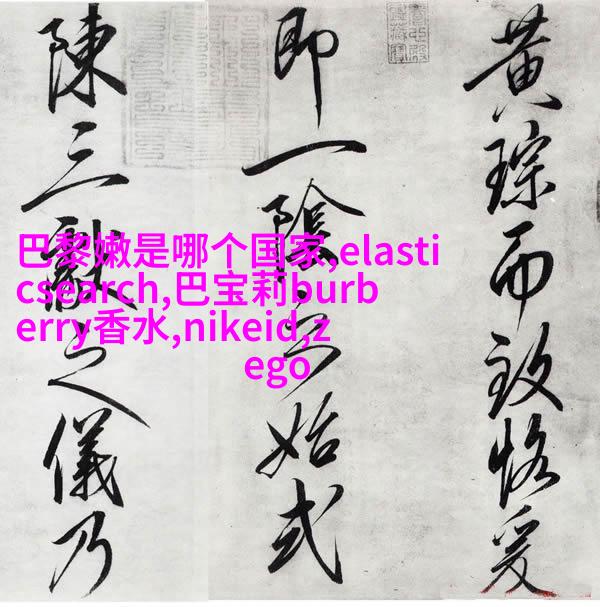 黄琮而致恪爰
即一陰之始式
陳三獻之儀乃
巴黎嫩是哪个国家,elasti
csearch,巴宝莉burb
erry香水,nikeid,z
ego